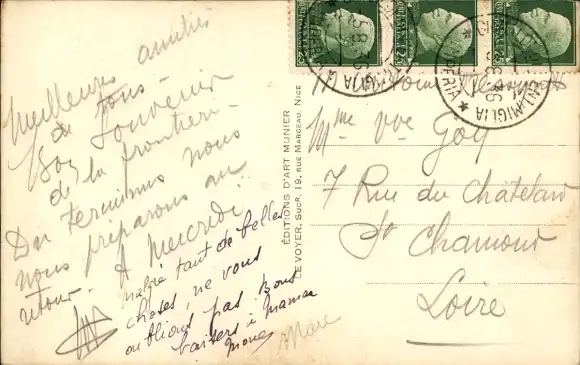 Meilleures amitiés
de tous -
Bon Souvenir
de la frontière -
Du terminus nous
nous préparons au
retour. A Mercredi
malgré tant de belles
choses, ne vous
oublions pas. Bons
baisers à Maman
ÉDITIONS D'ART MUNIER
LE VOYER, Sucr, 19, RUE MARCEAU, NICE
VENTIMIGLIA
Mme Vve Goy
7 Rue du Châtelard
St Chamond
Loire